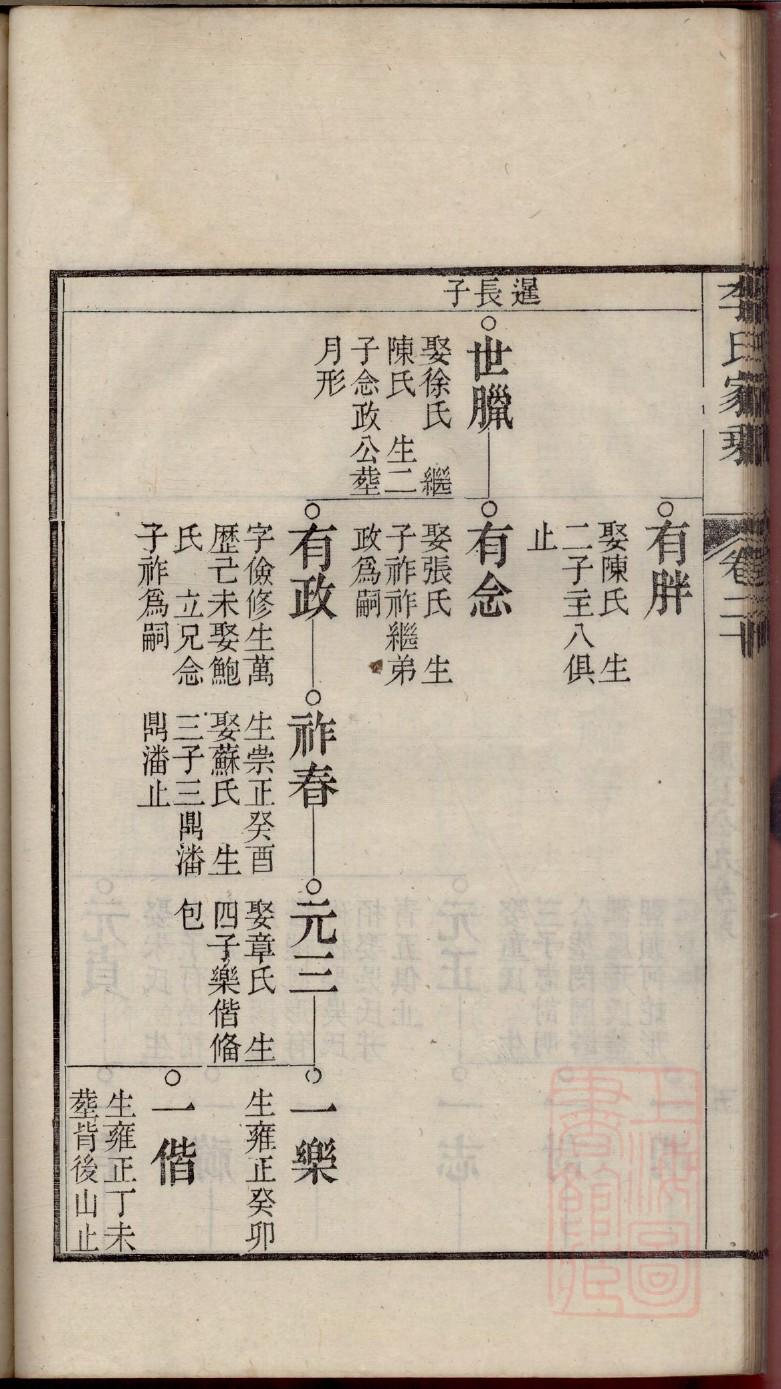 李氏家乘
卷二
暹長子
世臘
娶徐氏 繼
陳氏 生二
子念政公塟
月形
有胖
娶陳氏 生
二子主八俱
止
有念
娶張氏 生
子祚祚繼弟
政爲嗣
有政
字儉修生萬
歷己未娶鮑
氏 立兄念
子祚爲嗣
祚春
生崇正癸酉
娶蘇氏 生
三子三鼎潘
鼎潘止
元三
娶章氏 生
四子樂偕俻
包
一樂
生雍正癸卯
一偕
生雍正丁未
塟肯後山止
上海圖書館藏